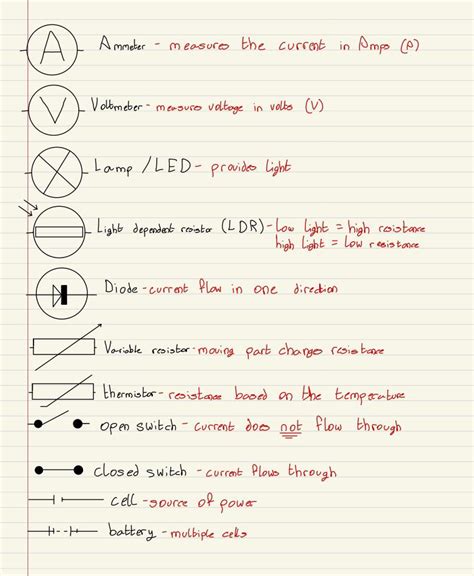 A
Ammeter - measures the current in Amps (A)
V
Voltmeter - measures voltage in volts (V)
Lamp / LED - provides light
Light dependent resistor (LDR) - low light = high resistance
high light = low resistance
Diode - current flow in one direction
Variable resistor - moving part changes resistance
thermistor - resistance based on the temperature
open switch - current does not flow through
closed switch - current flows through
cell - source of power
battery - multiple cells